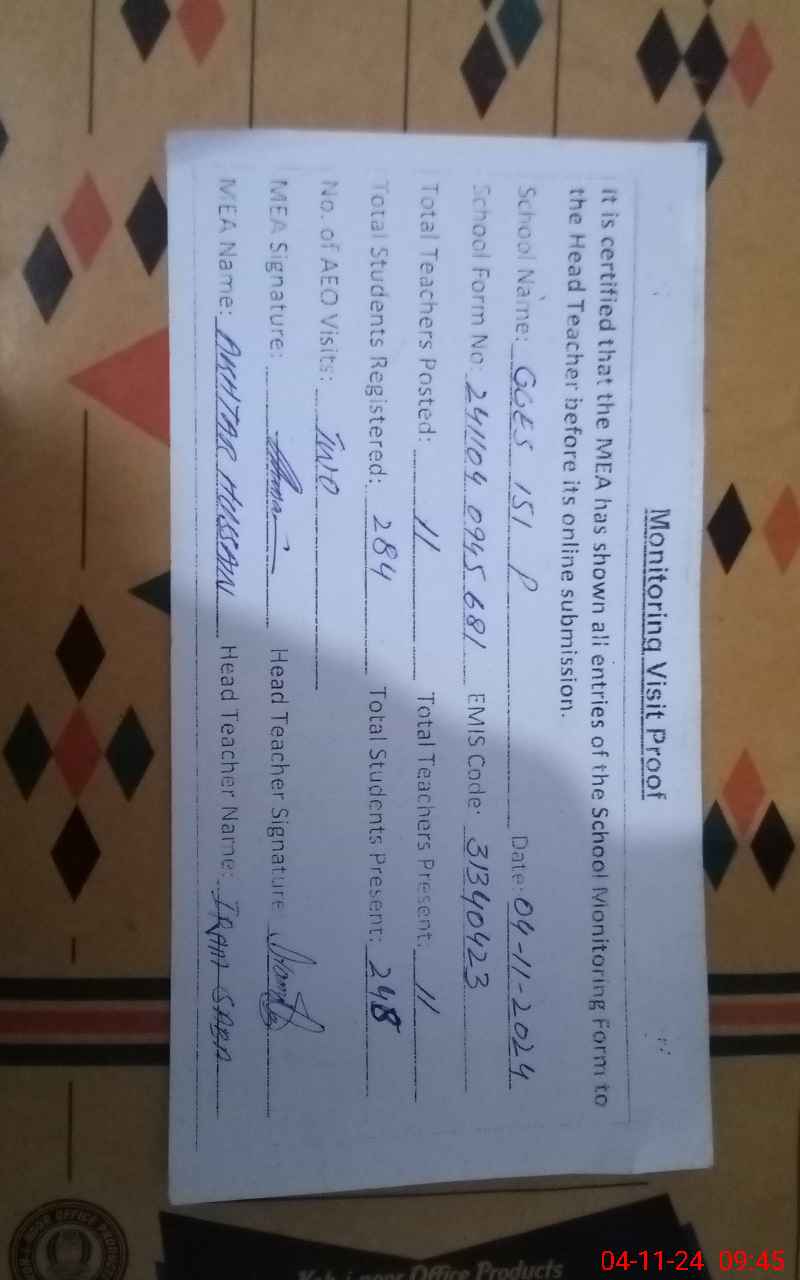 Monitoring Visit Proof
It is certified that the MEA has shown all entries of the School Monitoring Form to
the Head Teacher before its online submission.
School Name: GGES 151 P Date: 04-11-2024
School Form No: 241104 0945 681 EMIS Code: 31340423
Total Teachers Posted: 11 Total Teachers Present: 11
Total Students Registered: 284 Total Students Present: 248
No. of AEO Visits: TWO
MEA Signature: Head Teacher Signature:
MEA Name: AKHTAR HUSSAIN Head Teacher Name: IRAM SABA
Office Products
04-11-24 09:45